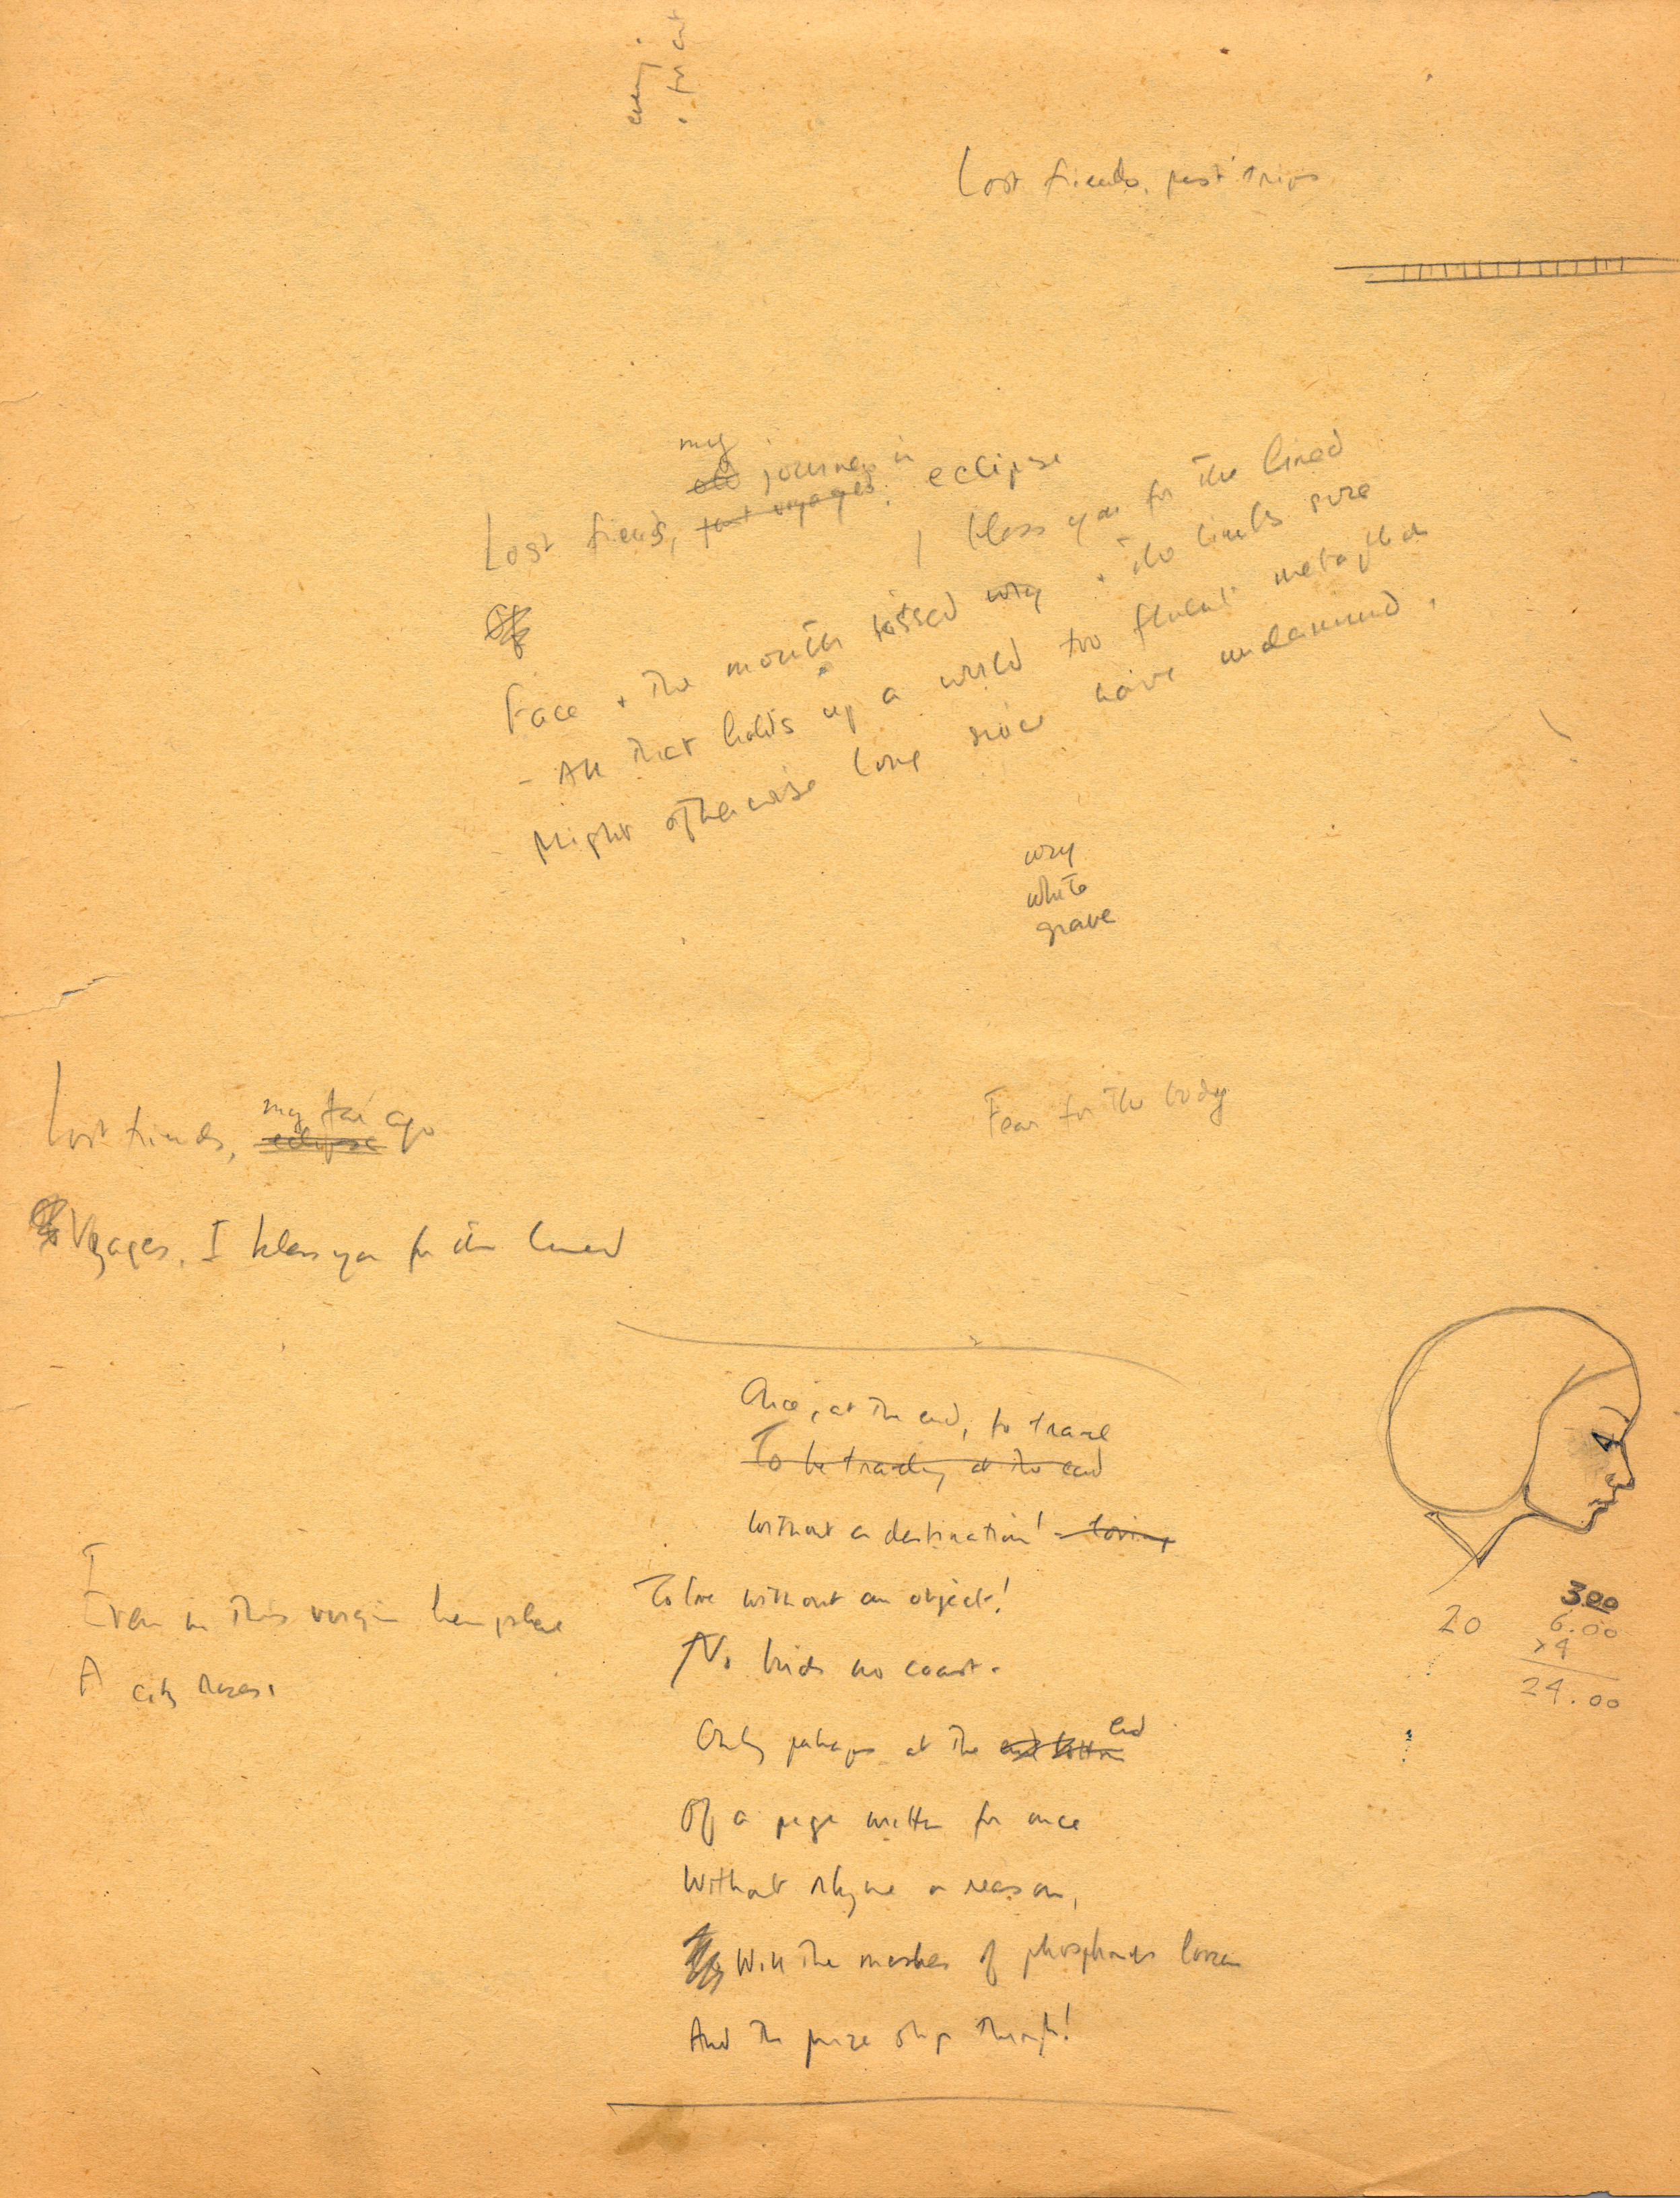 Lost friends, past trips
my
old journeys in
Lost friends, past voyages. eclipse
I bless you for the lined
Face + the mouth kissed wry + the limbs sure
- All that holds up a world too fluent metaphor
Might otherwise long since have undermined.
wry
white
grave
Fear for the body
my far ago
Lost friends, eclipse
Voyages, I bless you for the lined
Once, at the end, to travel
To be traveling at the end
Without a destination! loving
To love without an object!
No birds no coast.
I
Even in this virgin hemisphere
A city rises.
Only perhaps at the end bottom end
Of a page written for once
Without rhyme or reason,
Will the meshes of phosphorus loosen
And the prize slip through!
20
3.00
6.00
x4
24.00